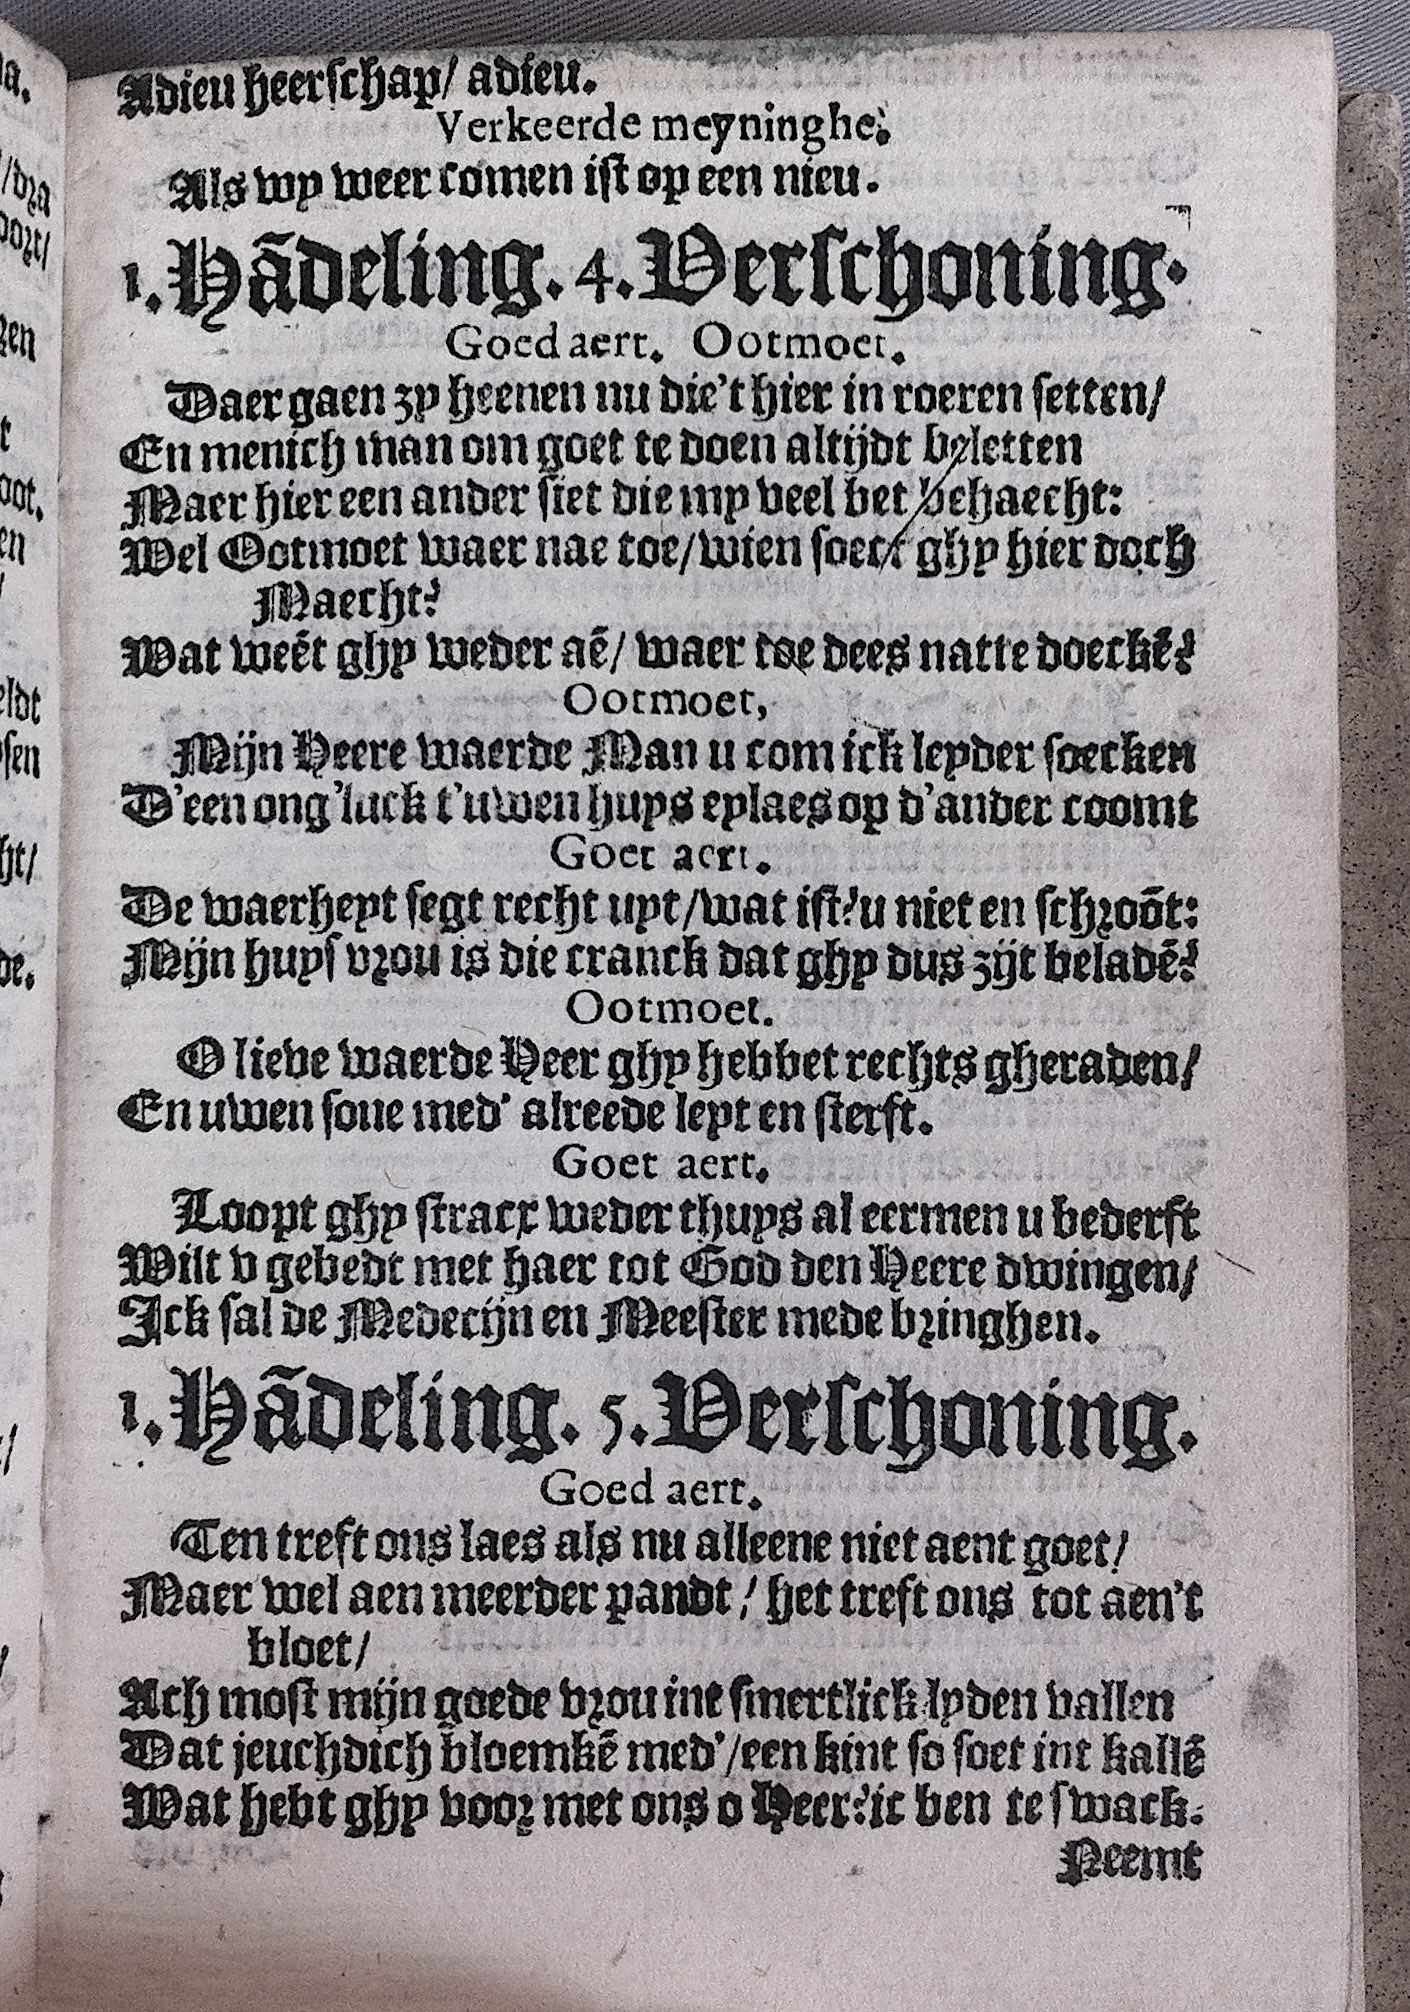 Adieu heerschap/ adieu.
Verkeerde meyninghe.
Als wy weer comen ist op een nieu.
1. Hãdeling. 4. Verschoning.
Goed aert. Ootmoet.
Daer gaen zy heenen nu die't hier in roeren setten/
En menich man om goet te doen altijdt beletten
Maer hier een ander siet die my veel bet behaecht:
Wel Ootmoet waer nae toe/ wien soect ghy hier doch
Maecht?
Wat weẽt ghy weder aẽ/ waer toe dees natte doeckẽ?
Ootmoet,
Mijn Heere waerde Man u com ick leyder soecken
D'een ong'luck t'uwen huys eylaes op d'ander coomt
Goet aert.
De waerheyt segt recht uyt/ wat ist? u niet en schroõt:
Mijn huysvrou is die cranck dat ghy dus zijt beladẽ?
Ootmoet.
O lieve waerde Heer ghy hebbet rechts gheraden/
En uwen sone med' alreede leyt en sterft.
Goet aert.
Loopt ghy stracx weder thuys al eermen u bederft
Wilt v gebedt met haer tot God den Heere dwingen/
Ick sal de Medecijn en Meester mede bringhen.
1. Hãdeling. 5. Verschoning.
Goed aert.
Ten treft ons laes als nu alleene niet aent goet/
Maer wel aen meerder pandt/ het treft ons tot aen't
bloet/
Ach most mijn goede vrou int smertlick lyden vallen
Dat jeuchdich bloemkẽ med'/ een kint so soet int kallẽ
Wat hebt ghy voor met ons o Heer? ic ben te swack.
Neemt